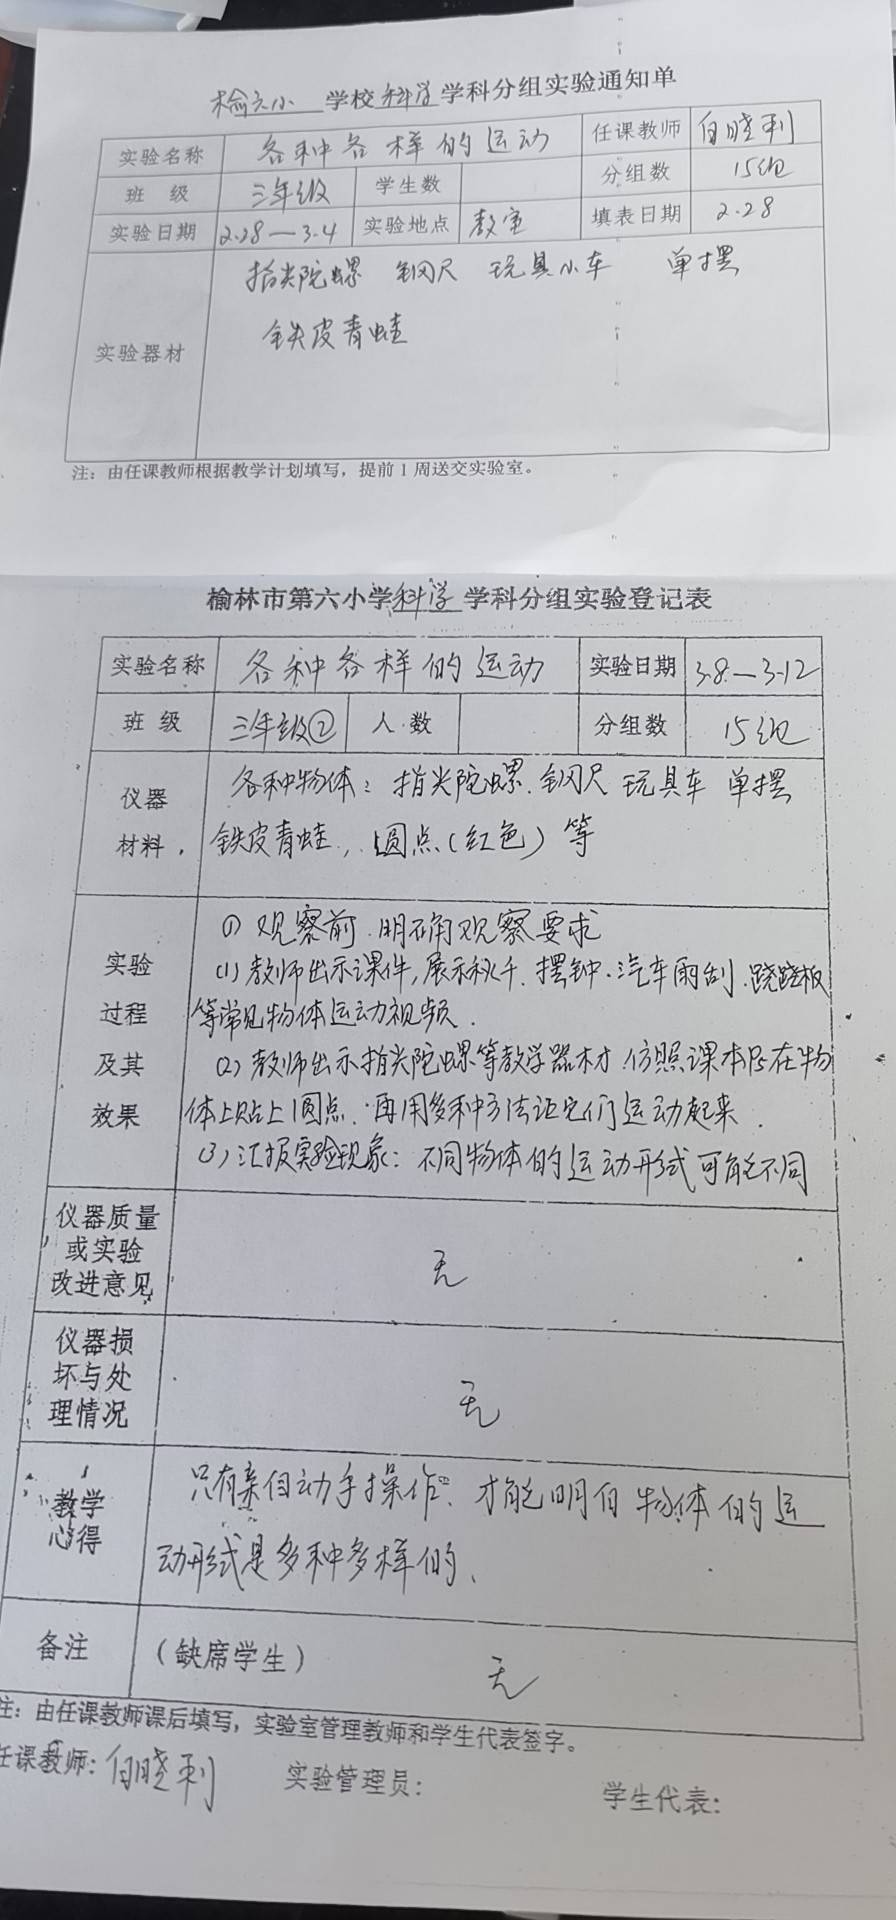 榆六小 学校科学学科分组实验通知单
实验名称 各种各样的运动 任课教师 白晓利
班 级 三年级 学生数 分组数 15组
实验日期 2.28—3.4 实验地点 教室 填表日期 2.28
指尖陀螺 钢尺 玩具小车 单摆
铁皮青蛙
实验器材
注：由任课教师根据教学计划填写，提前1周送交实验室。
榆林市第六小学科学学科分组实验登记表
实验名称 各种各样的运动 实验日期 3.8—3.12
班 级 三年级② 人数 分组数 15组
仪器 各种物体：指尖陀螺.钢尺 玩具车 单摆
材料 铁皮青蛙、圆点（红色）等
① 观察前.明确观察要求
实验 (1) 教师出示课件,展示秋千.摆钟.汽车雨刮.跷跷板
过程 等常见物体运动视频.
及其 (2) 教师出示指尖陀螺等教学器材.仿照课本P5在物
效果 体上贴上圆点.再用多种方法让它们运动起来.
(3) 汇报实验现象：不同物体的运动形式可能不同
仪器质量
或实验
改进意见 无
仪器损
坏与处
理情况 无
教学 只有亲自动手操作、才能明白物体的运
心得 动形式是多种多样的、
备注 （缺席学生） 无
注：由任课教师课后填写，实验室管理教师和学生代表签字。
任课教师：白晓利 实验管理员： 学生代表：